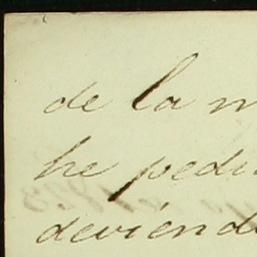 de la m
he pedi
deviend